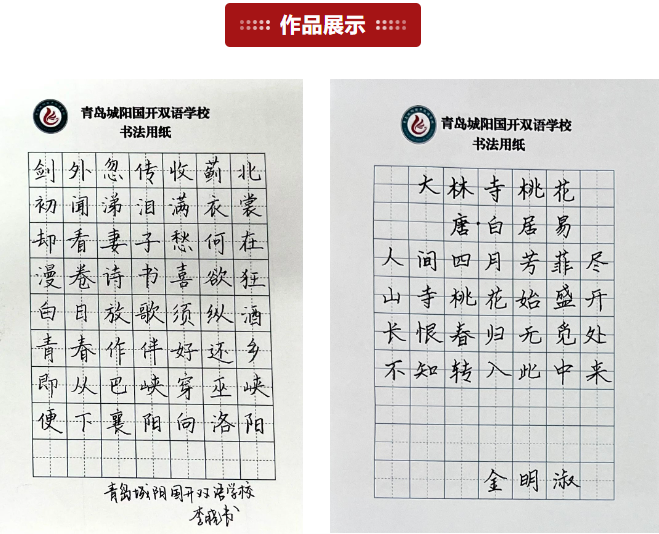 作品展示
青岛城阳国开双语学校
书法用纸
剑外忽传收蓟北
初闻涕泪满衣裳
却看妻子愁何在
漫卷诗书喜欲狂
白日放歌须纵酒
青春作伴好还乡
即从巴峡穿巫峡
便下襄阳向洛阳
青岛城阳国开双语学校
李晓
青岛城阳国开双语学校
书法用纸
大林寺桃花
唐·白居易
人间四月芳菲尽
山寺桃花始盛开
长恨春归无觅处
不知转入此中来
金明淑